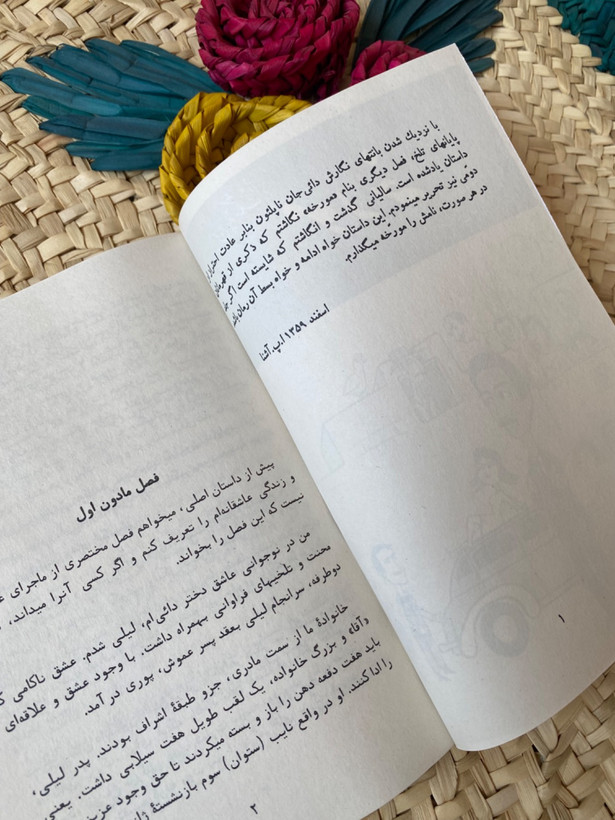 با نزدیك شدن بانتهای نگارش دائی‌جان ناپلئون بنابر عادت
پایانهای تلخ، فصل دیگری بنام مورخه، نگاشتم که ذکری از قهرمان
داستان یادشده است. سالیانی گذشت و انگاشتم که شایسته است اگر
دومی نیز تحریر مینمودم. این داستان خواه ادامه و خواه بسط آن رمان
در هر صورت، نامش را مورخه میگذارم.
اسفند ۱۳۵۹ ا.پ.آشنا
۱
فصل مادون اول
پیش از داستان اصلی، میخواهم فصل مختصری از ماجرای
و زندگی عاشقانه‌ام را تعریف کنم و اگر کسی آنرا میداند،
نیست که این فصل را بخواند.
من در نوجوانی عاشق دختر دائی‌ام، لیلی شدم. عشق ناکامی
محنت و تلخیهای فراوانی بهمراه داشت. با وجود عشق و علاقه‌ای
دوطرفه، سرانجام لیلی بعقد پسر عموش، پوری در آمد.
خانوادهٔ ما از سمت مادری، جزو طبقهٔ اشراف بودند. پدر لیلی،
وآقا، و بزرگ خانواده، یک لقب طویل هفت سیلابی داشت. یعنی
باید هفت دفعه دهن را باز و بسته میکردند تا حق وجود
را ادا کنند. او در واقع نایب (ستوان) سوم بازنشستهٔ
۲